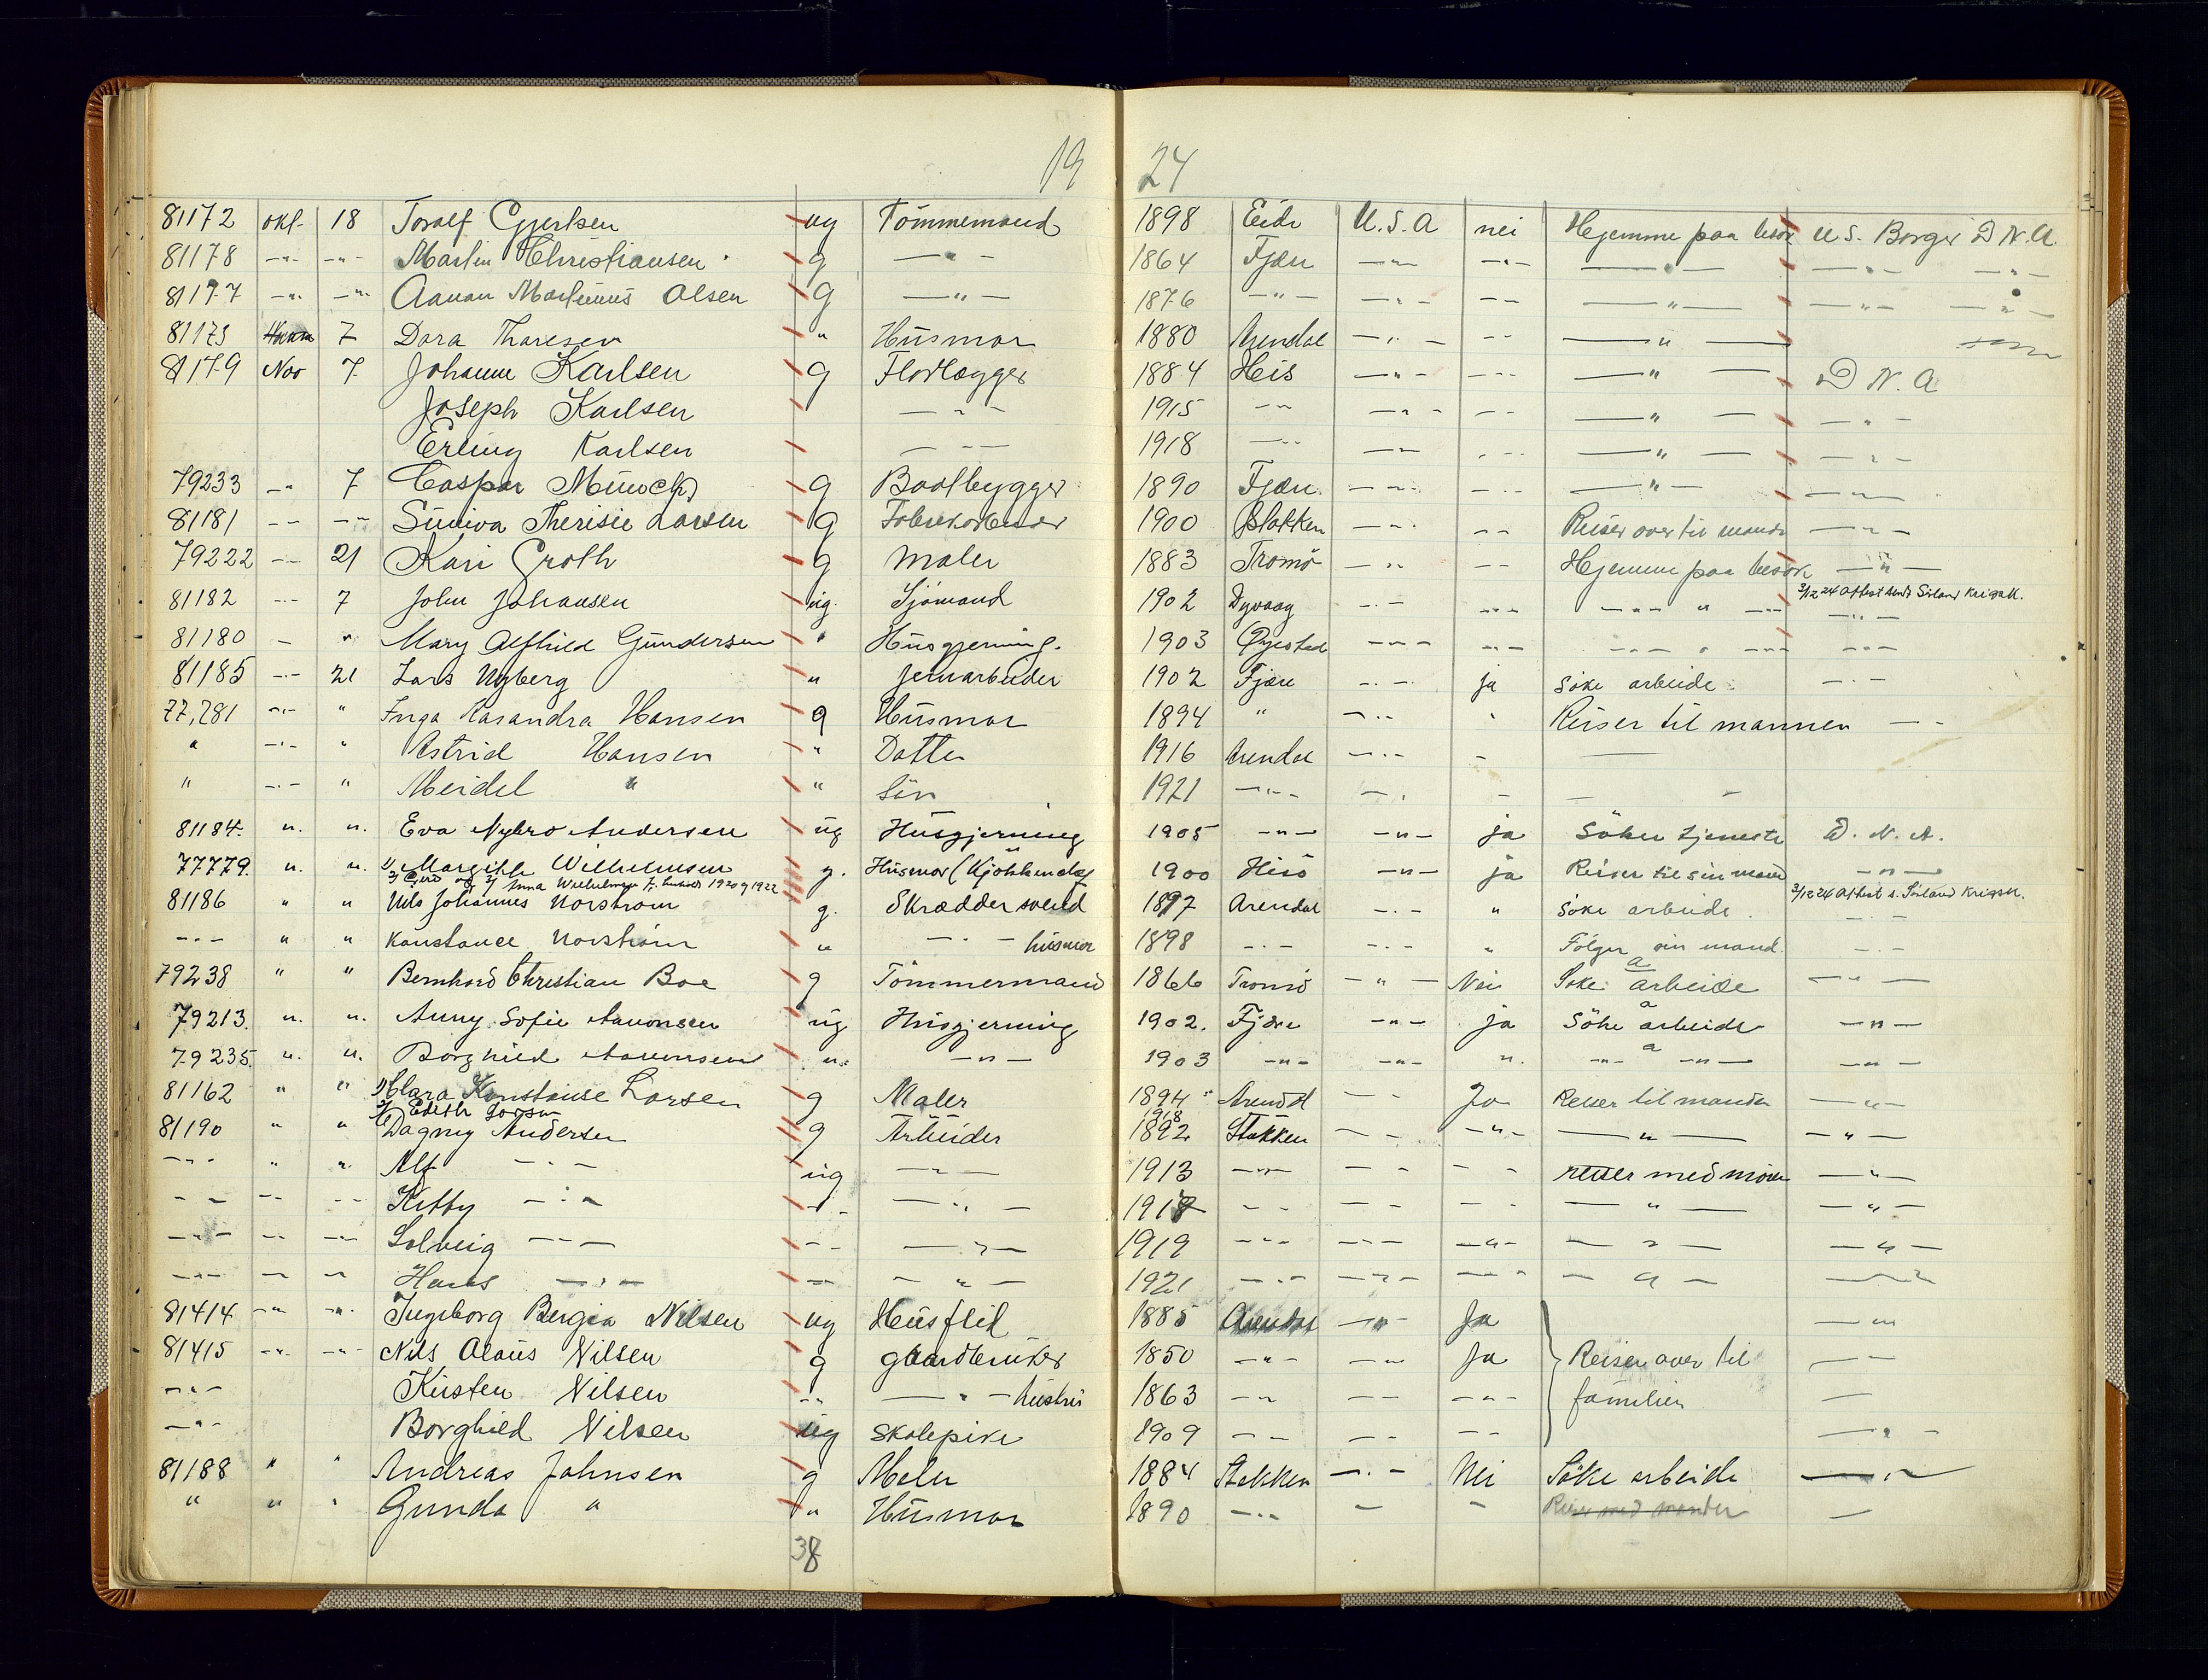 19 24
81172 okt. 18 Toralf Gjertsen ug Tömmemand 1898 Eide U.S.A nei Hjemme paa besøk U.S. Borger D N.A.
81178 -"- -"- Martin Christiansen g -"- 1864 Fjære -"- -"- -"- -"- -"-
81177 -"- -"- Aanon Martinius Olsen g -"- 1876 -"- -"- -"- -"- -"- -"-
81175 7 Dora Thoresen " Husmor 1880 Arendal -"- -"- -"-
81179 Nov 7 Johanne Karlsen g Flodlægger 1884 His -"- -"- -"- D N. A
Joseph Karlsen -"- 1915 -"- -"- -"- -"- -"-
Erling Karlsen -"- 1918 -"- -"- -"- -"- -"-
79233 -"- 7 Caspar Münch g Baatbygger 1890 Fjære -"- -"- -"- -"-
81181 -"- -"- Suniva Therisie Larsen g Fabrikarbeider 1900 Stokken -"- -"- Reiser over til manden -"-
79222 -"- 21 Kari Groth g Maler 1883 Tromö -"- -"- Hjemme paa besøk -"-
81182 -"- 7 John Johansen ug. Sjömand 1902 Dyvaag -"- -"- -"- " -"- 3/12 24 Attest sendt Sörland Krigsk. -"-
81180 - " Mary Alfhild Gundersen " Husgjerning. 1903 Øyestad -"- -"- -"- " -"- -"-
81185 -"- 21 Lars Nyberg " Jernarbeider 1902 Fjære -"- ja Söke arbeide -"-
77,781 -"- " Inga Kasandra Hansen g Husmor 1894 " -"- " Reiser til mannen -"-
" -"- " Astrid Hansen " Datter 1916 Arendal -"- -
" -"- " Meidel " " Sön 1921 -"- -"- - -
81184. ". ". Eva Nybro Andersen ug Husgjerning 1905 -"- -"- ja Söker tjeneste D. N. A.
77779. ". ". 1) Margithe Wilhelmsen g. Husmor (Kjøkkendag 1900 Hisö -"- ja Reiser til sin mand -"-
2) Gerd og 3) Anna Wilhelmsen f. 1920 g 1922
81186 " " Nils Johannes Norström g. Skrædder svend 1897 Arendal -"- " söke arbeide. 3/12 24 Attest s. Sörland Krigsk. -"-
-"- " " Konstance Norström " -"- husmor 1898 -"- -"- " Fölger sin mand. -"-
79238 " " Bernhard Christian Boe g Tömmermand 1866 Tromö -"- Nei Söke arbeide -"-
79213. ". ". Anny Sofie Aanonsen ug Husgjerning 1902. Fjære -"- ja Söke arbeide -"-
79235. ". ". Borghild Aanonsen ". -"- 1903 -"- -"- ". -"- -"- -"-
81162 " " 1) Clara Konstanse Larsen g Maler 1894 Arendal -"- Ja Reiser til manden -"-
2) Edith Larsen 1918
81190 " " Dagny Andersen g Arbeider 1892 Stokken -"- -"- -"- -"-
-"- " " Alf -"- ug -"- 1913 -"- -"- -"- reiser med moren -"-
-"- -"- -"- Kitty -"- -"- -"- 1917 -"- -"- -"- -"- -"-
-"- -"- -"- Solveig -"- -"- -"- 1919 -"- -"- -"- -"- -"-
-"- -"- -"- Hans -"- -"- -"- 1921 -"- -"- -"- -"- -"-
81414 -"- -"- Ingeborg Bergia Nilsen ug Husflid 1885 Arendal -"- Ja -"-
81415 -"- -"- Nils Olaus Nilsen g gaardbruker 1850 -"- -"- Ja Reiser over til -"-
-"- Kirsten Nilsen -"- -"- hustru 1863 -"- -"- -"- familien -
-"- Borghild Nilsen ug Skolepike 1909 -"- -"- -"- -"-
81188 " " Andreas Johnsen g Maler 1884 Stokken -"- Nei Söke arbeide -"-
" " " Gunda " " Husmor 1890 -"- - - Reiser med manden -
38